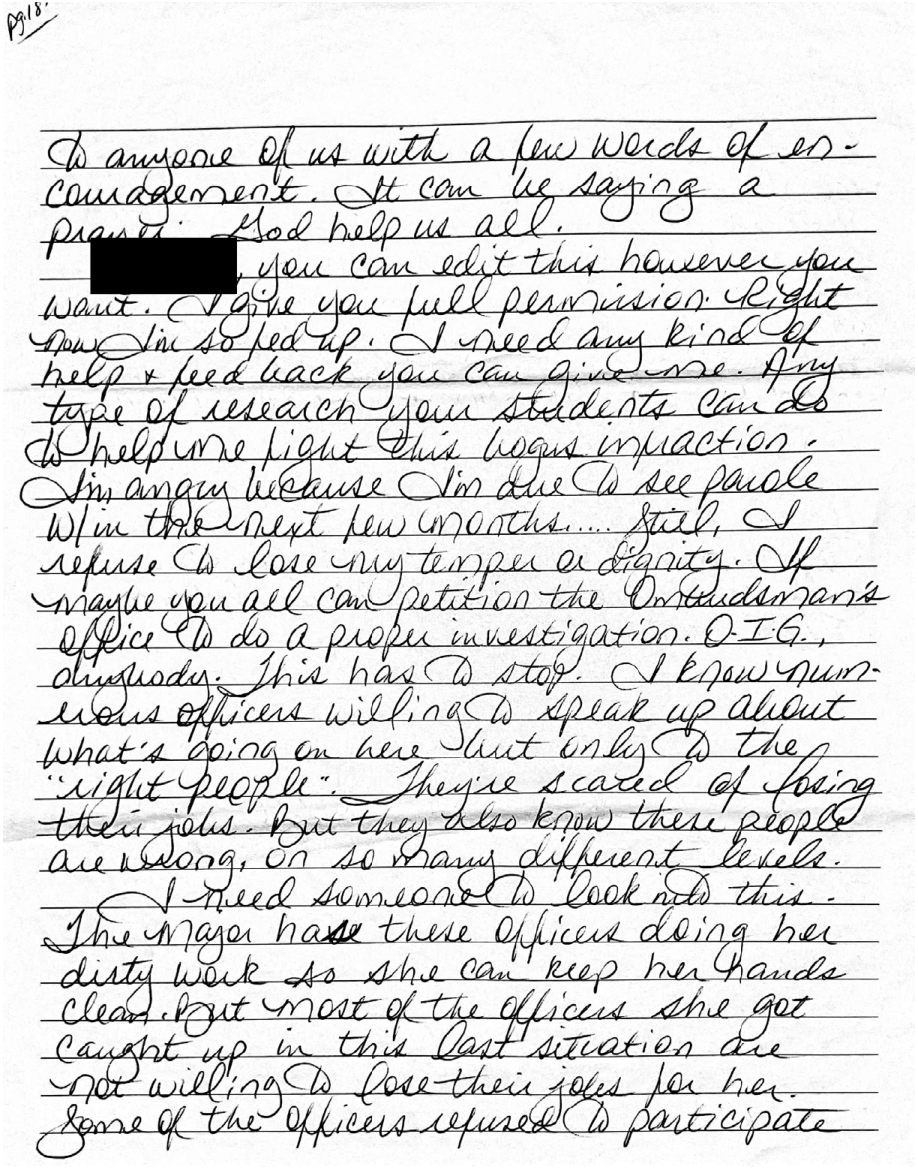 pg.18.
to anyone of us with a few words of en-
couragement. It can be saying a
prayer. God help us all.
, you can edit this however you
want. I give you full permission. Right
now I'm so fed up. I need any kind of
help & feed back you can give me. Any
type of research your students can do
to help me fight this bogus infraction.
I'm angry because I'm due to see parole
w/in the next few months..... Still, I
refuse to lose my temper or dignity. If
maybe you all can petition the Ombudsman's
office to do a proper investigation. O.I.G.,
anybody. This has to stop. I know num-
erous officers willing to speak up about
what's going on here but only to the
"right people". They're scared of losing
their jobs. But they also know these people
are wrong, on so many different levels.
I need someone to look into this.
The Major have these officers doing her
dirty work so she can keep her hands
clean. But most of the officers she got
caught up in this last situation are
not willing to lose their jobs for her.
Some of the officers refused to participate